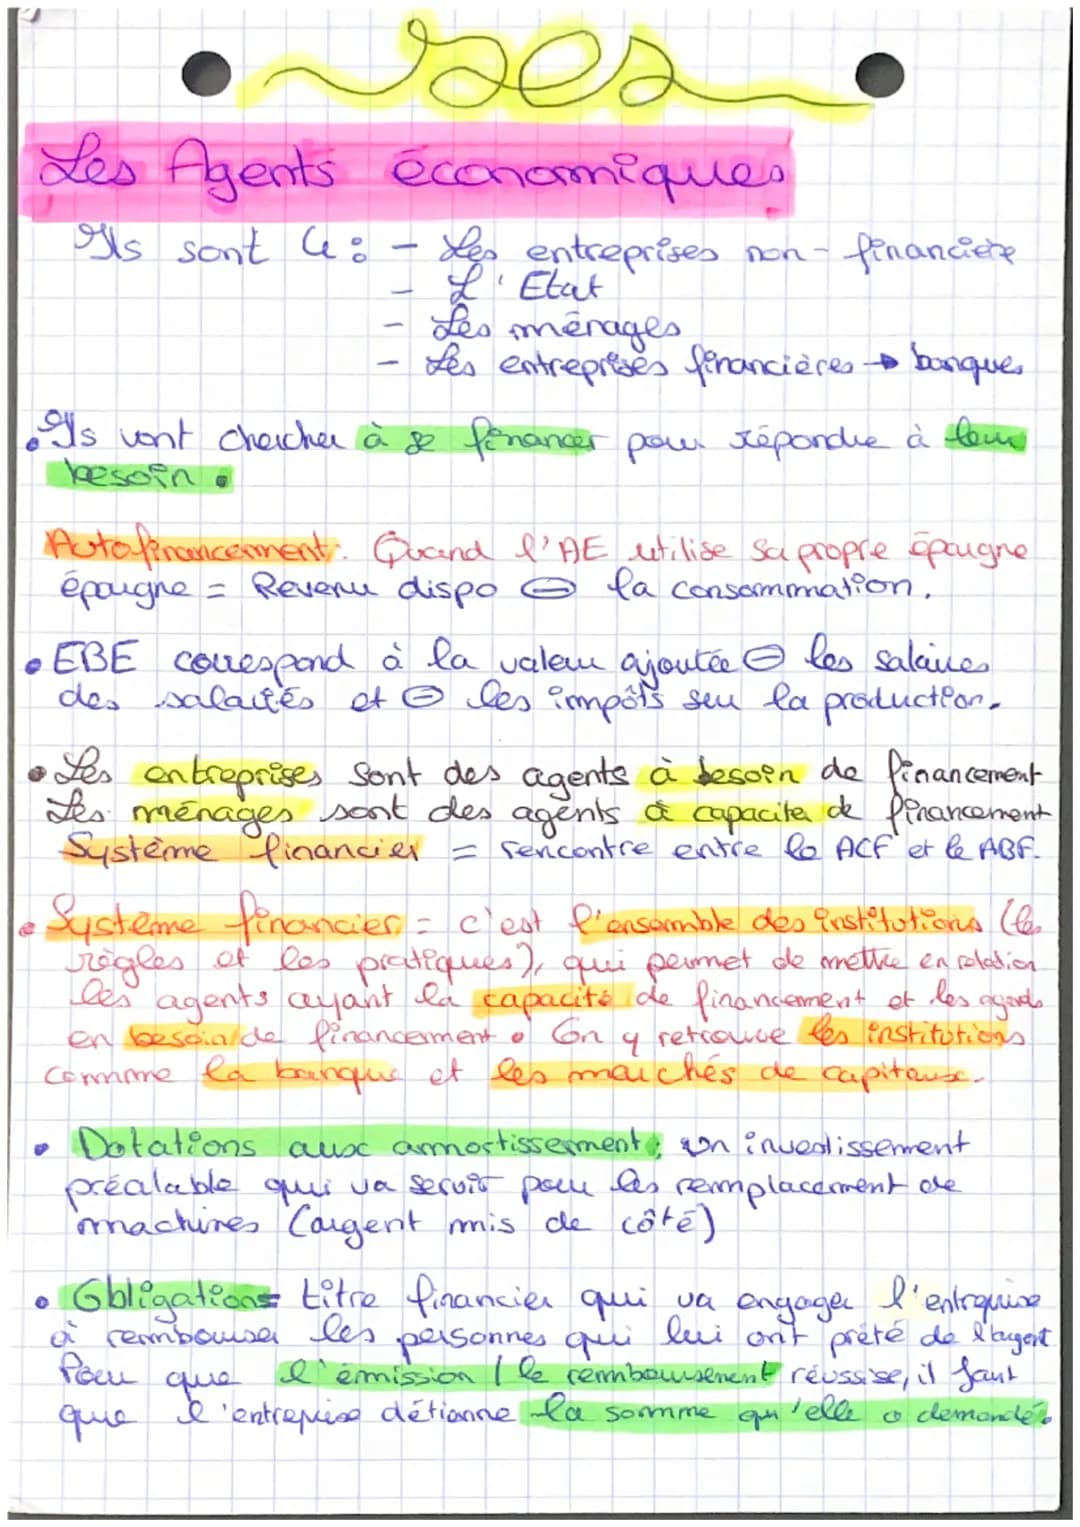 ses
Les Agents économiques
Ils sont 4 : - Les entreprises non-financière
- L'Etat
- Les ménages
- Les entreprises financières → banques
• Ils vont chercher à se financer pour répondre à leur
besoin.
Autofinancement. Quand l'AE utilise sa propre épargne
épargne = Revenu dispo ⊖ la consommation.
• EBE correspond à la valeur ajoutée ⊖ les salaires
des salariés et ⊖ les impôts sur la production.
• Les entreprises sont des agents à besoin de financement
Les ménages sont des agents à capacite de financement
Système financier = rencontre entre le ACF et le ABF.
• Système financier = c'est l'ensemble des institutions (les
règles et les pratiques), qui permet de mettre en relation
les agents ayant la capacité de financement et les agents
en besoin de financement. On y retrouve les institutions
comme la banque et les marchés de capitaux.
• Dotations aux amortissement : un investissement
préalable qui va servir pour les remplacement de
machines (argent mis de côté)
• Obligations = titre financier qui va engager l'entreprise
à rembourser les personnes qui lui ont prêté de l'argent.
Pour que l'émission / le remboursement réussise, il faut
que l'entreprise détienne la somme qu'elle a demandé.